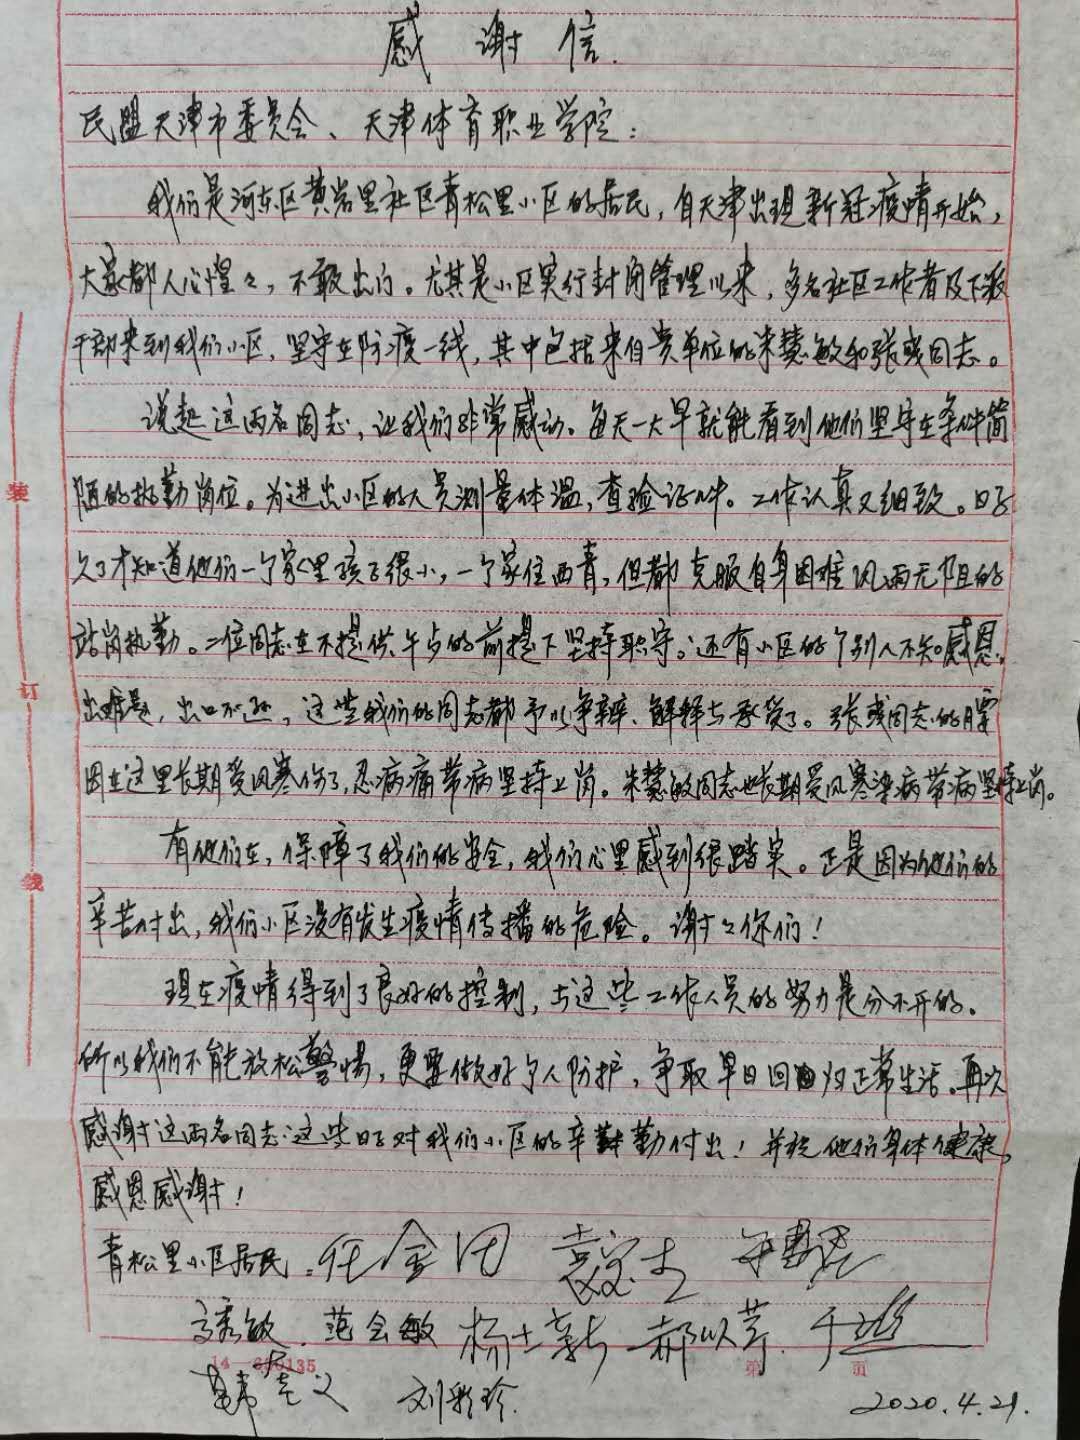 感谢信.
民盟天津市委员会、天津体育职业学院：
我们是河东区黄岩里社区青松里小区的居民，自天津出现新冠疫情开始，
大家都人心惶々，不敢出门。尤其是小区实行封闭管理以来，多名社区工作者及下派
干部来到我们小区，坚守在防疫一线，其中包括来自贵单位的朱慧敏和张彧同志。
说起这两名同志，让我们非常感动。每天一大早就能看到他们坚守在条件简
陋的执勤岗位。为进出小区的人员测量体温，查验证件。工作认真又细致。日子
久了才知道他们一个家里孩子很小，一个家住西青，但都克服自身困难风雨无阻的
站岗执勤。二位同志在不提供午餐的前提下坚持职守。还有小区的个别人不知感恩，
出难题，出口不逊，这些我们的同志都予以争辩、解释与承受了。张彧同志的腰
因在这里长期受风寒伤了，忍病痛带病坚持上岗。朱慧敏同志也长期受风寒染病带病坚持上岗。
有他们在，保障了我们的安全，我们心里感到很踏实。正是因为他们的
辛苦付出，我们小区没有发生疫情传播的危险。谢々你们！
现在疫情得到了良好的控制，与这些工作人员的努力是分不开的。
所以我们不能放松警惕，更要做好个人防护，争取早日回归正常生活。再次
感谢这两名同志这些日子对我们小区的辛勤付出！并祝他们身体健康，
感恩感谢！
青松里小区居民：任金团
范会敏 杨士新 郝以芹
刘彩珍.
14—690135 第 页
2020.4.21.
装
订
线